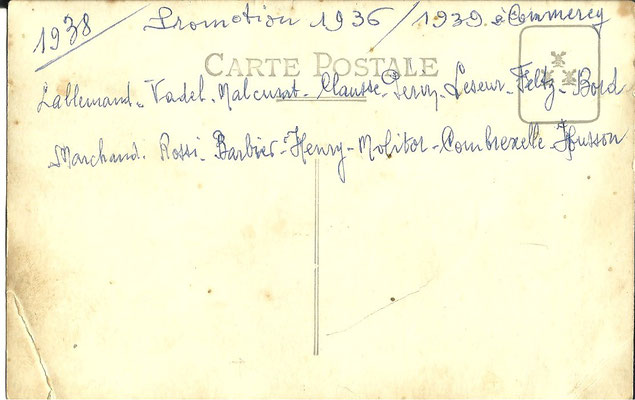 1938 Promotion 1936/1939 à Commercy
CARTE POSTALE
Lallemand - Vadel - Malcurat - Clausse - Peroy - Leseur - Feltz - Bord
Marchand. Rossi - Barbier - Henry - Molitor - Combrexelle - Husson